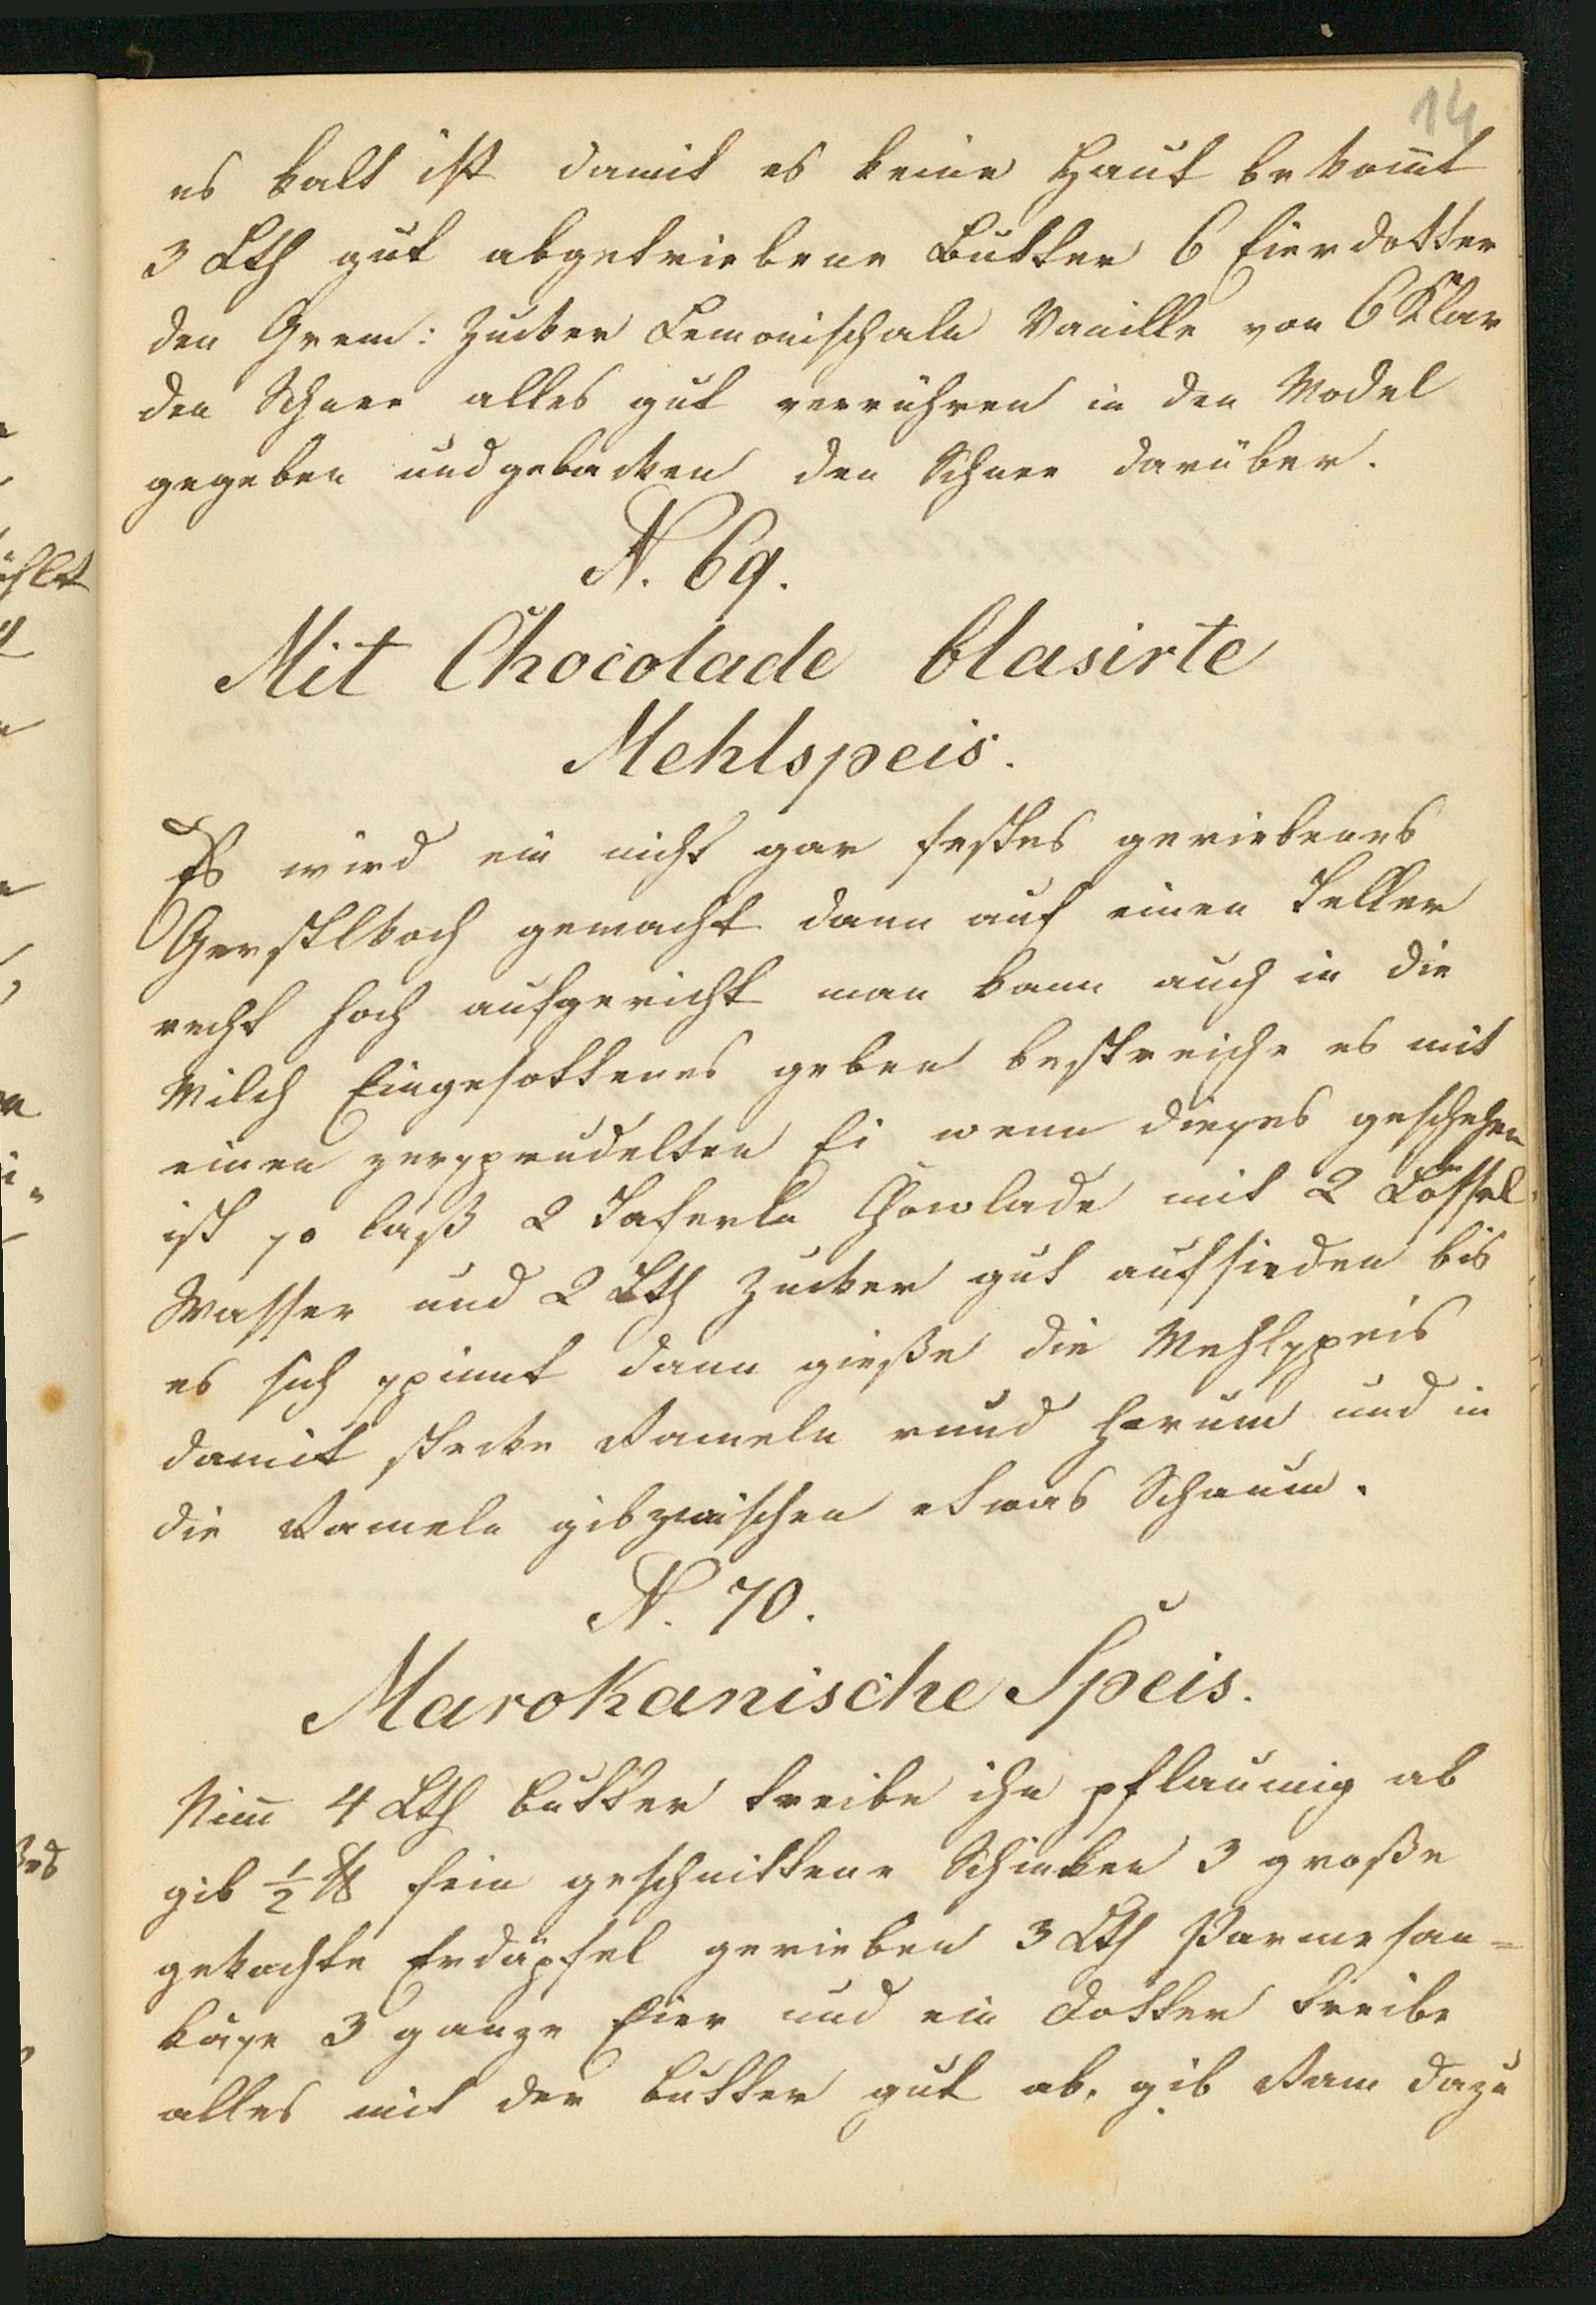 14
es kalt ist damit es keine Haut bekom̄t
3 Lth gut abgetriebene Butter 6 Eierdotter
den Grem: Zucker Lemonischale Vanille von 6 Klar
den Schnee alles gut verrühren in den Model
gegeben und gebacken den Schnee darüber.
N. 69.
Mit Chocolade Glasirte
Mehlspeis.
Es wird ein nicht gar festes geriebenes
Gerstlkoch gemacht dann auf einen Teller
recht hoch aufgericht man kann auch in die
Milch Eingesottenes geben bestreiche es mit
einen zersprudelten Ei wenn dieses geschehen
ist so laß 2 Taferln Chocolade mit 2 Löffel
Wasser und 2 Lth Zucker gut aufsieden bis
es sich spinnt dann gieße die Mehlspeis
damit stecke Rameln rund herum und in
die Rameln gib zwischen etwas Schaum.
N. 70.
Marokanische Speis.
Nim̄ 4 Lth Butter treibe ihn pflaumig ab
gib ½ ℔ fein geschnittene Schinken 3 große
gekochte Erdäpfel gerieben 3 Lth Parmesan=
käse 3 ganze Eier und ein Dotter treibe
alles mit der Butter gut ab, gib Ram dazu